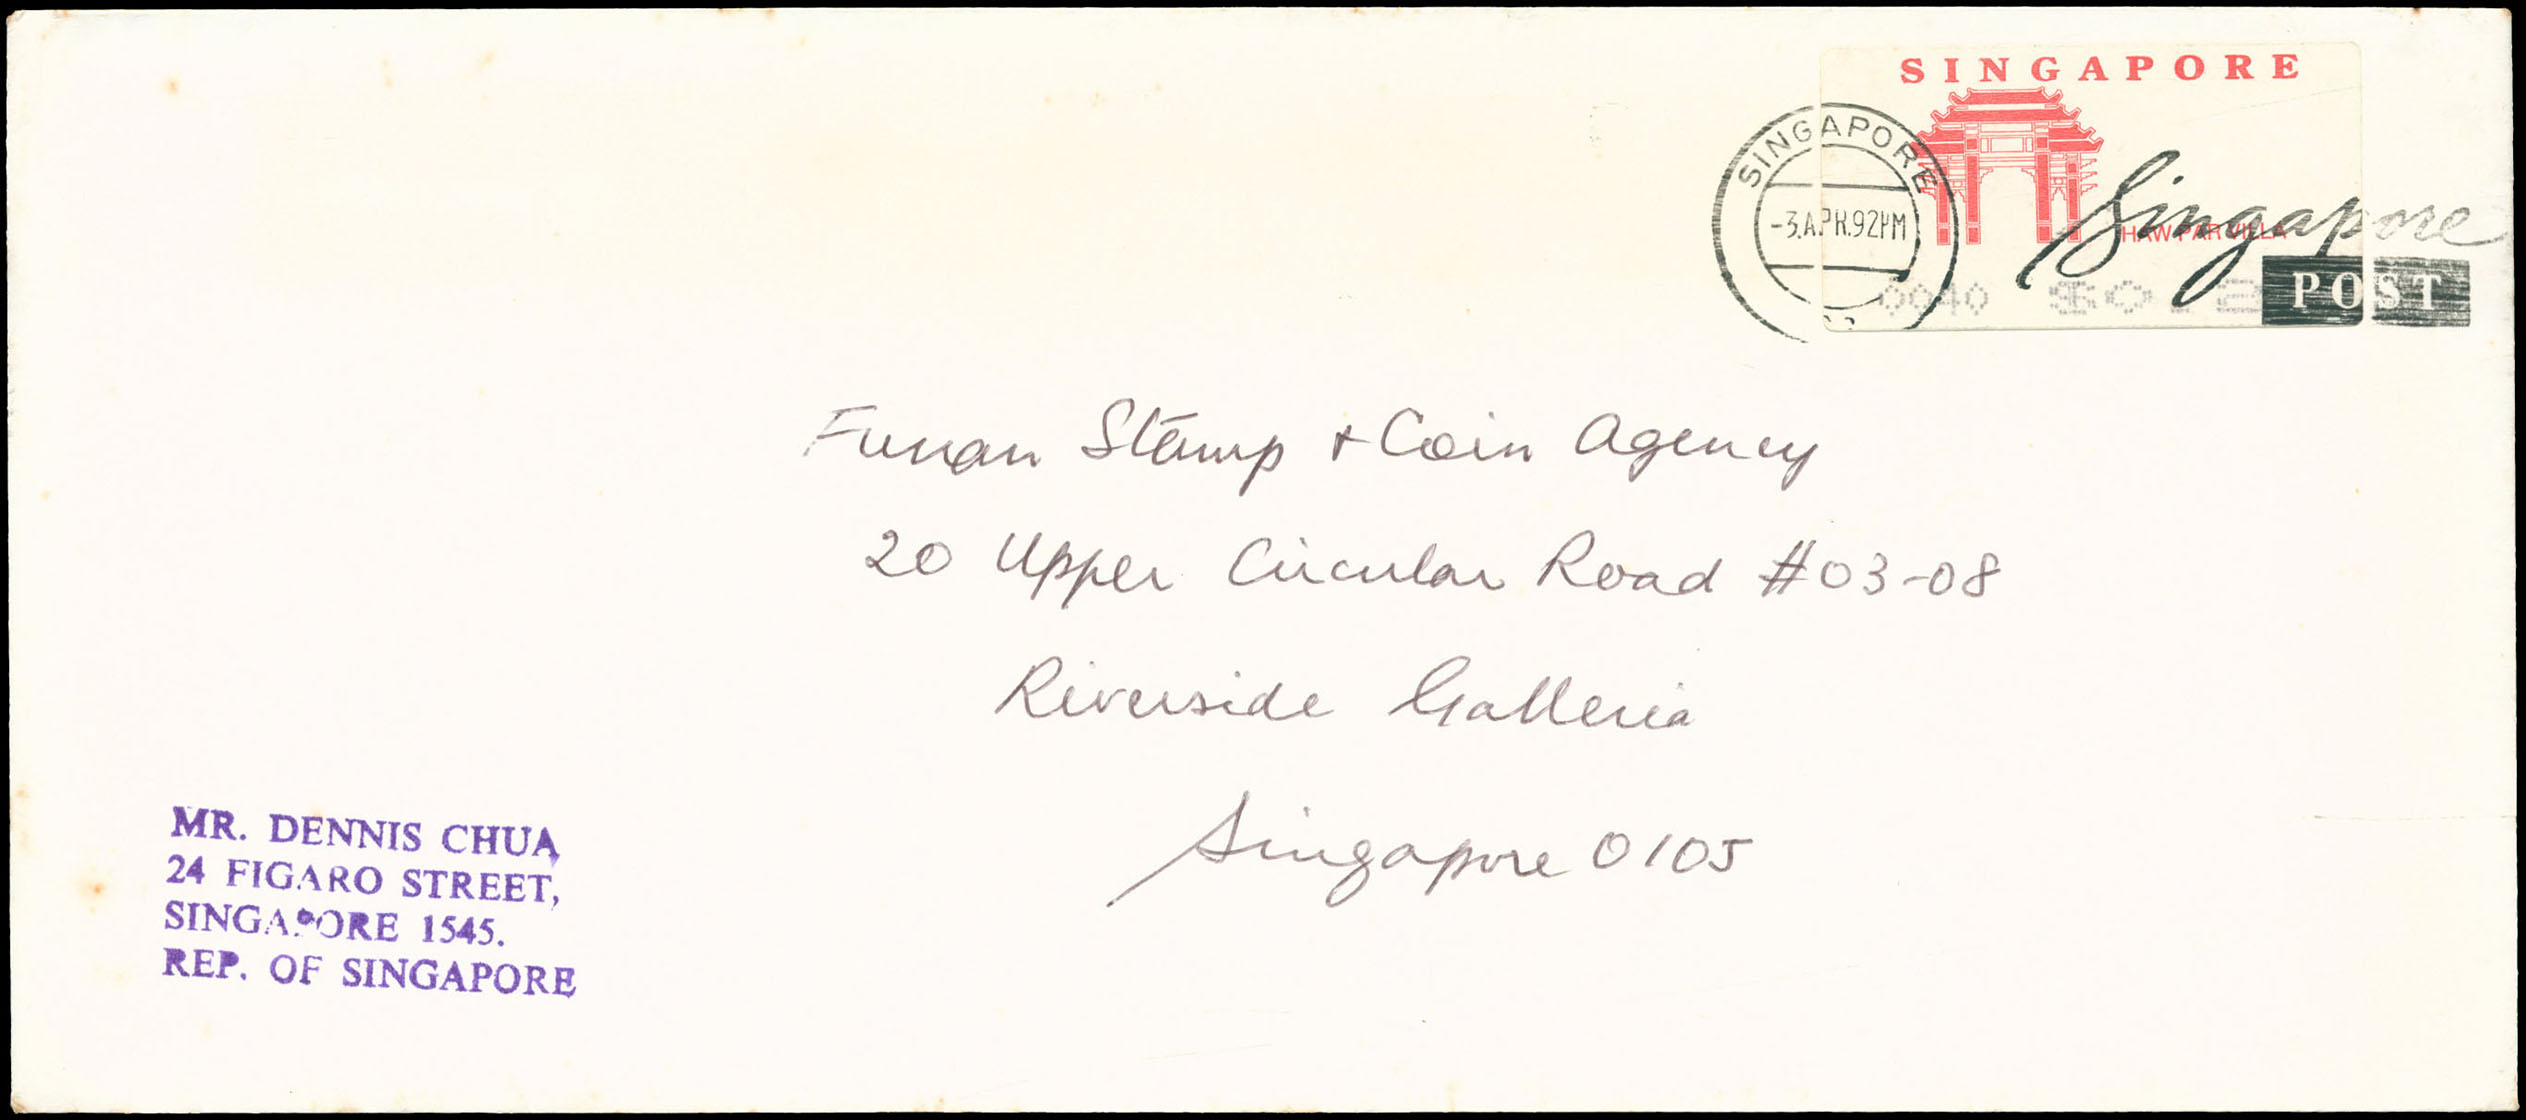 SINGAPORE
SINGAPORE
-3.APR.92PM
Singapore
HAW PAR VILLA
0040
POST
Funan Stamp + Coin Agency
20 Upper Circular Road #03-08
Riverside Galleria
Singapore 0105
MR. DENNIS CHUA
24 FIGARO STREET,
SINGAPORE 1545.
REP. OF SINGAPORE